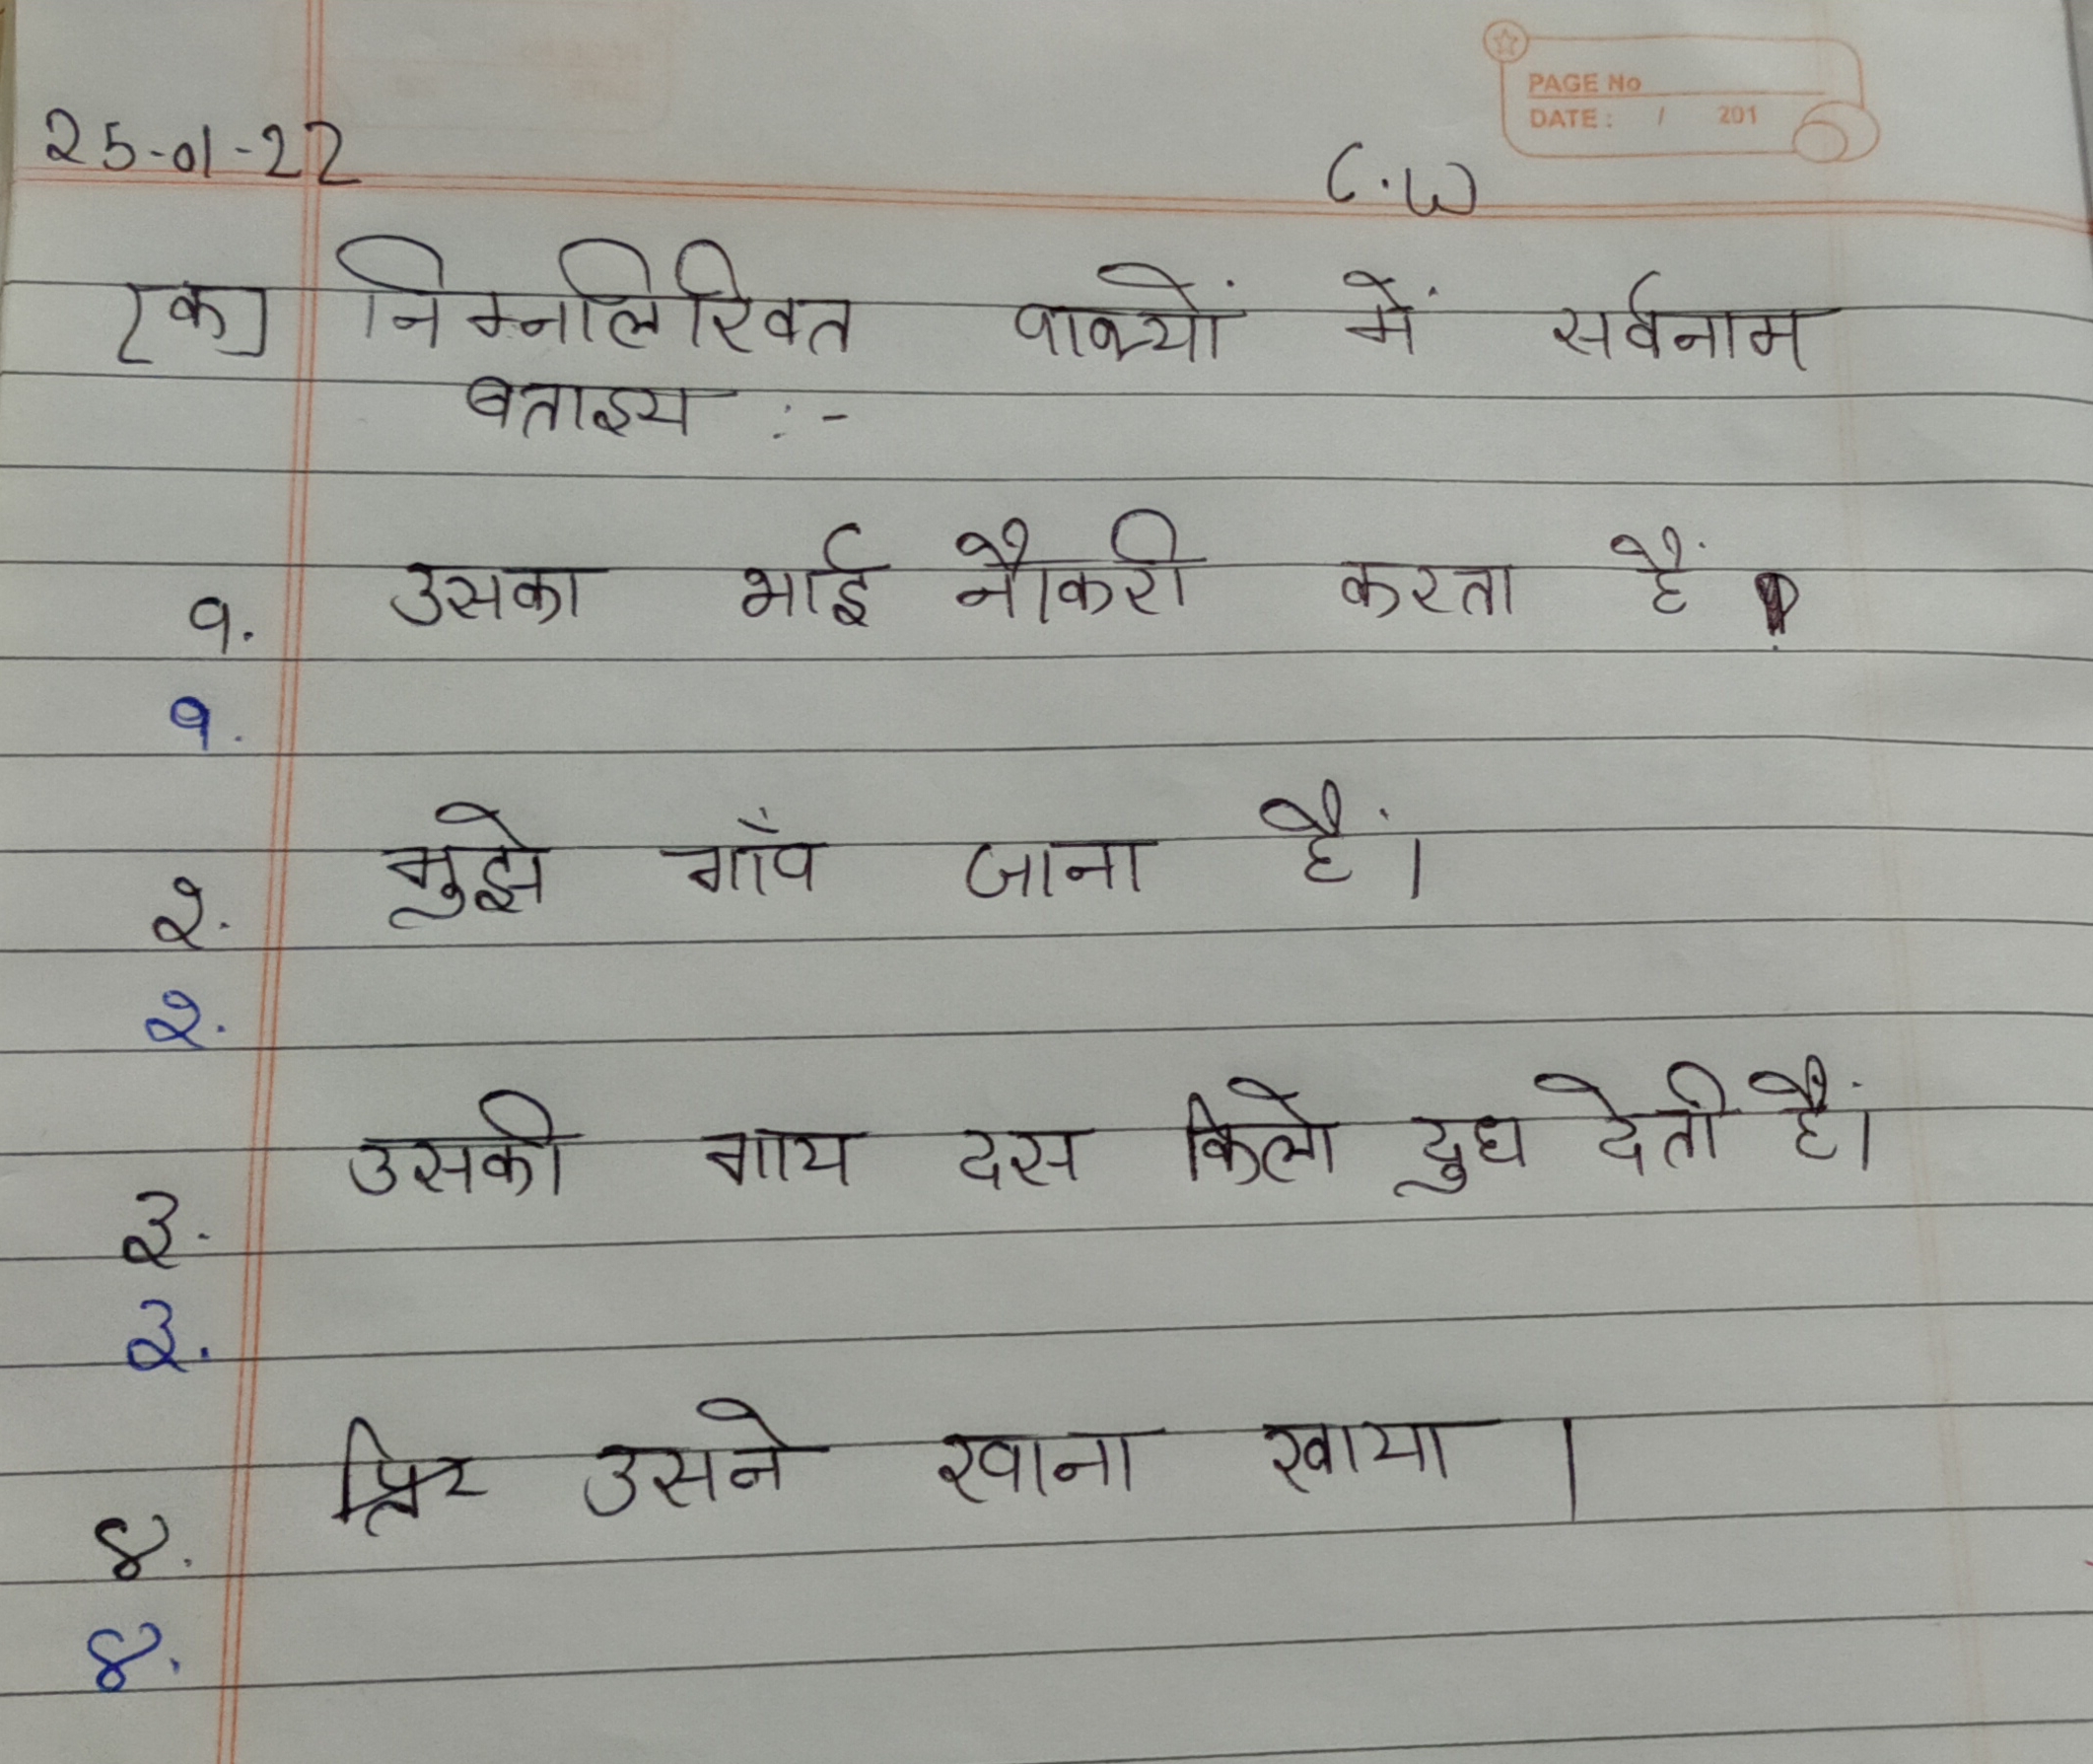 PAGE No
DATE: / 201
25-01-22
C.W
[क] निम्नलिखित वाक्यों में सर्वनाम
बताइय :-
१. उसका भाई नौकरी करता हैं
१.
२. मुझे गाँव जाना हैं।
२.
३. उसकी गाय दस किलो दुध देती हैं।
३.
४. फिर उसने खाना खाया |
४.